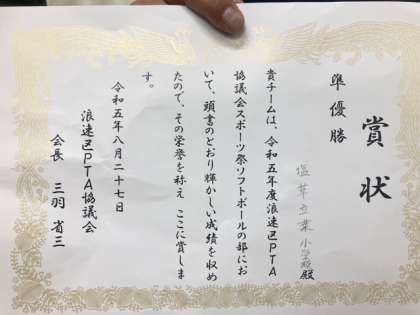 賞状
準優勝
塩草立葉小学校殿
貴チームは、令和五年度浪速区PTA
協議会スポーツ祭ソフトボールの部にお
いて、頭書のとおり輝かしい成績を収め
たので、その栄誉を称え ここに賞しま
す。
令和五年八月二十七日
浪速区PTA協議会
会長 三羽 省三